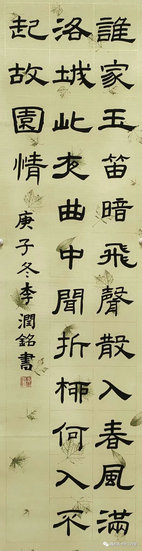 誰家玉笛暗飛聲散入春風滿
洛城此夜曲中聞折柳何人不
起故園情
庚子冬李潤銘書